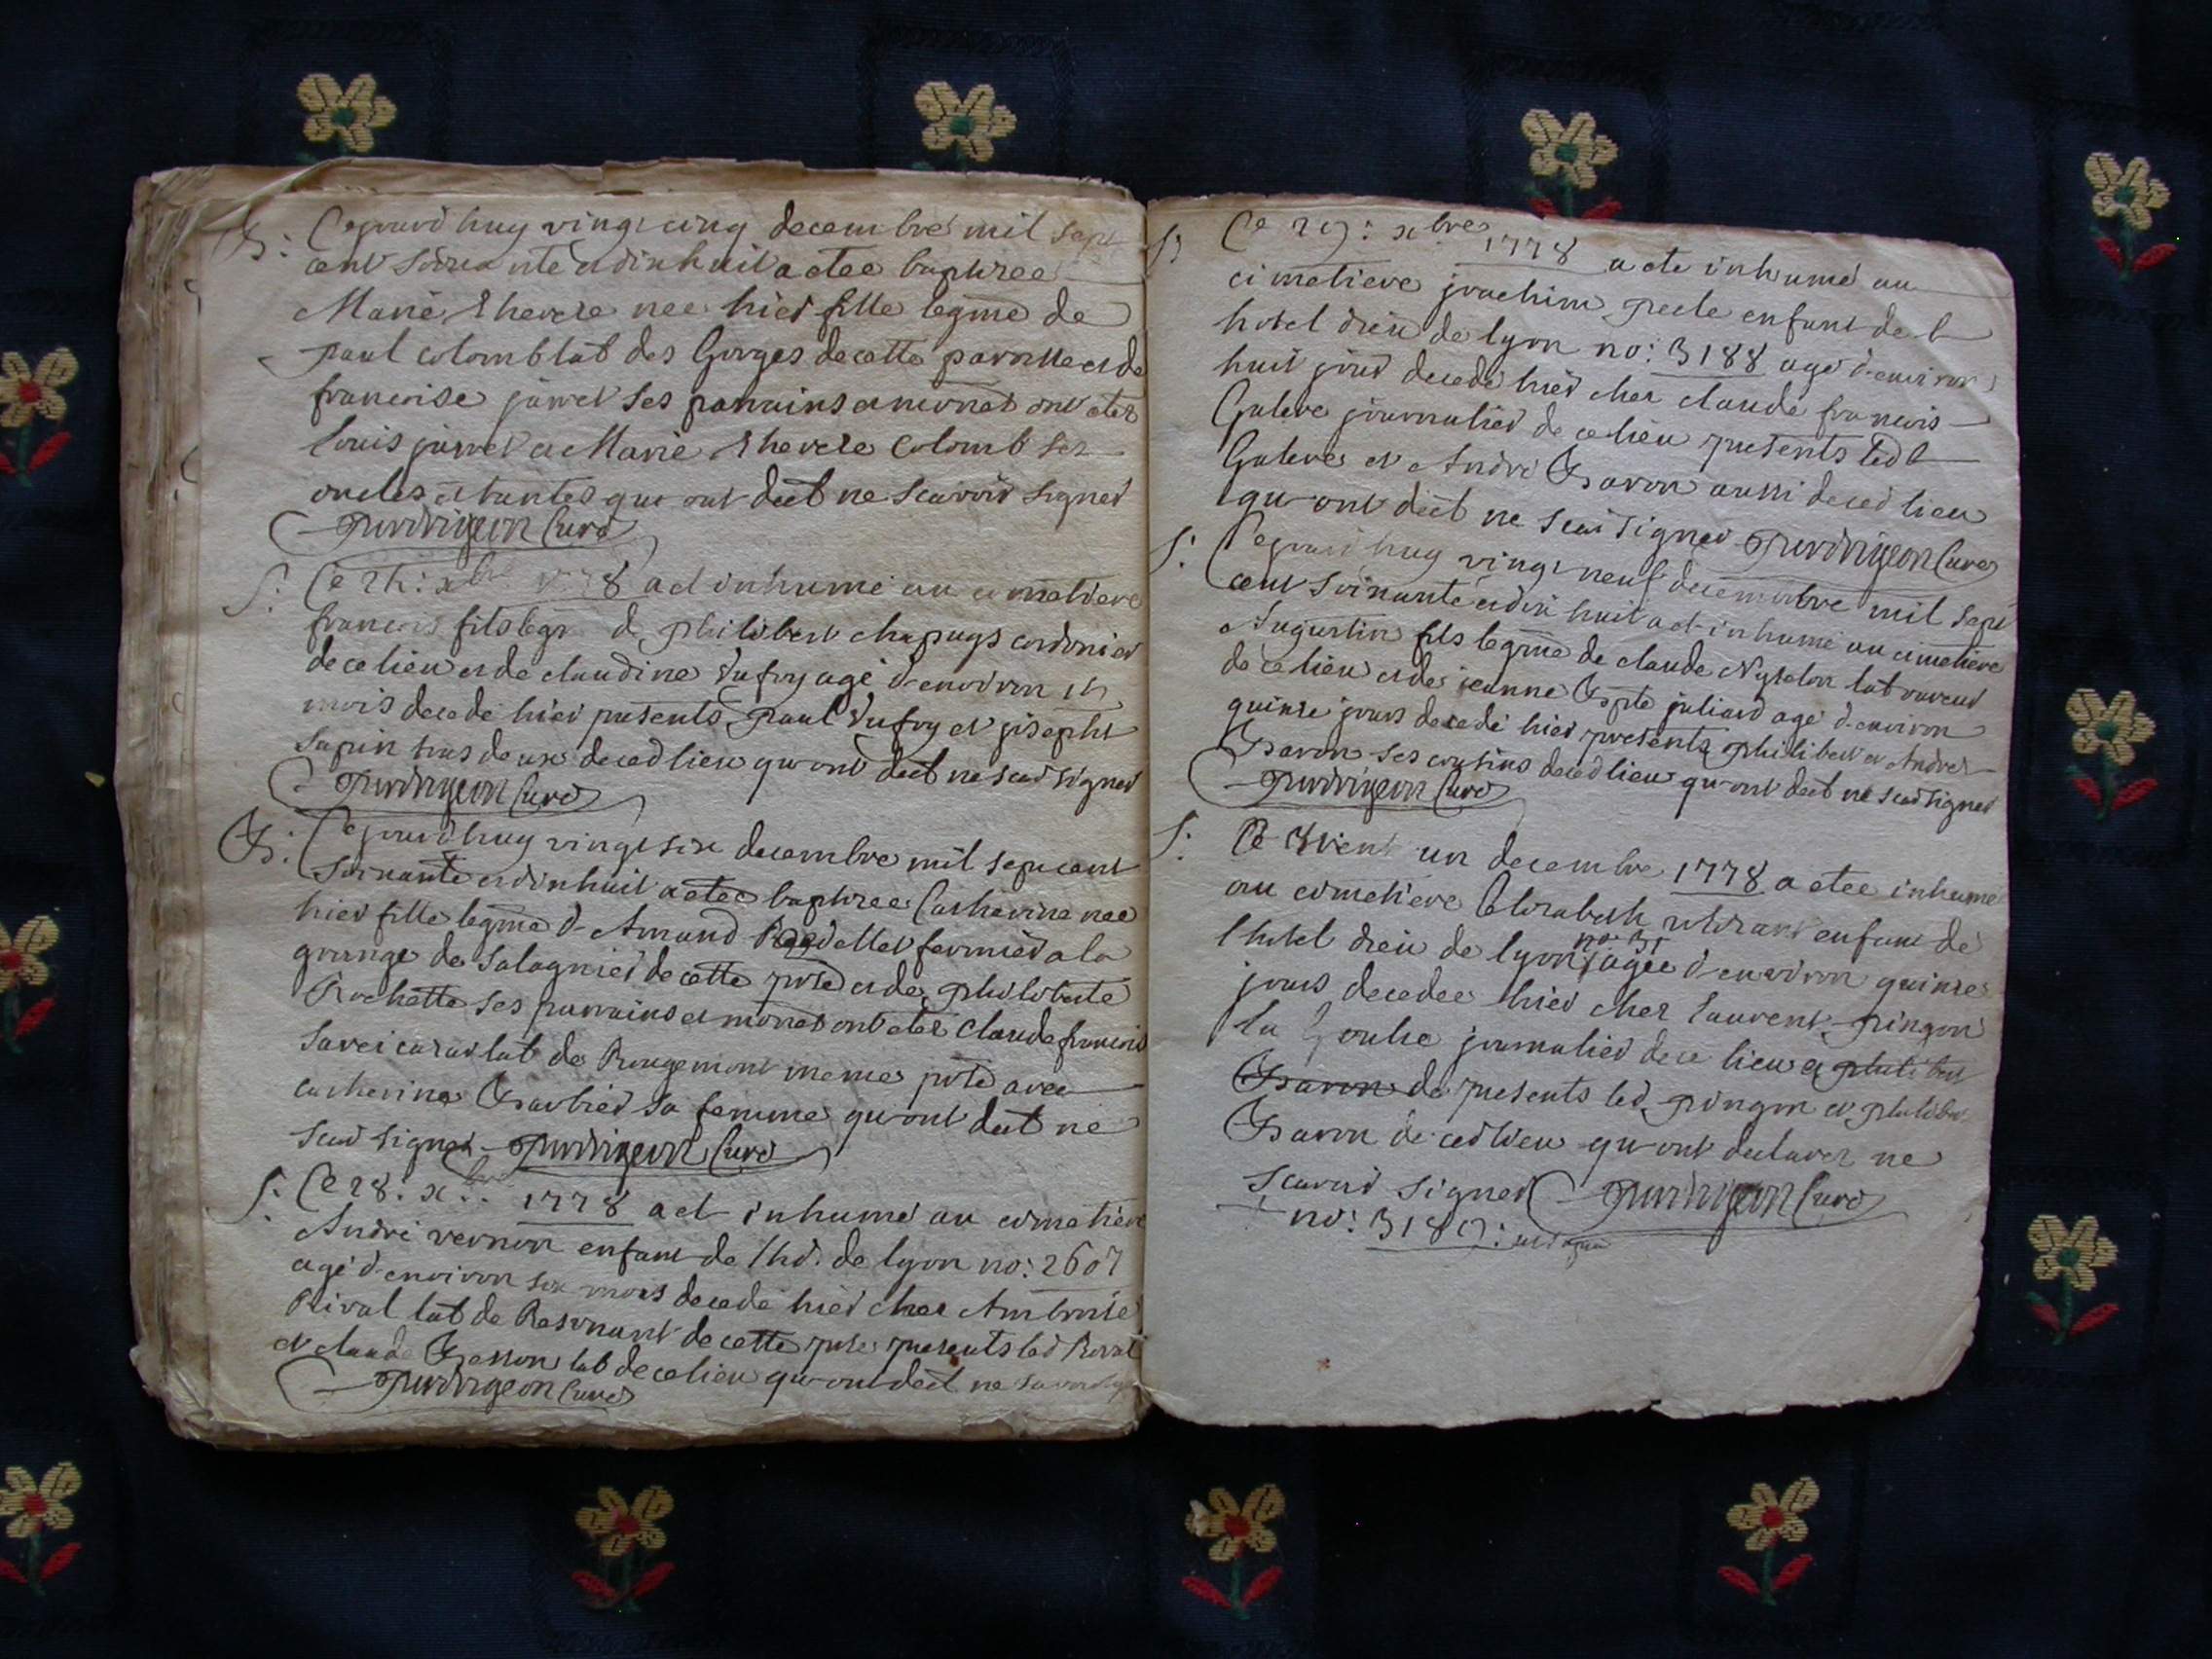 B: Cejourdhuy vingt cinq decembre mil sept
cent soixante et dixhuit a etee baptizee
Marie therese nee hier fille legme de
paul colomb lab des Gorges de cette paroisse et de
francoise jarret ses parrains et mormes ont etez
louis jarret et Marie therese Colomb ses
oncles et tantes qui ont deet ne scavoir signer
Curé
S: Ce xbre 1778 a et inhumé au cimetiere
francois fils legme de philibert chapuys cordonier
de ce lieu et de claudine dufoy agé d'environ
mois decedé hier presents paul dufoy et joseph
sapin tous deux decedlieu qu'ont deet ne scav signer
Curé
B: Cejourdhuy vingt six decembre mil sept cent
soixante et dixhuit a etee baptizee Catherine nee
hier fille legme d'Amand fermier a la
grange de Salagnier de cette psse et de philiberte
Rochette ses parrains et mormes ont etez Claude francois
lab de Rougemont meme psse avec
catherine Barbier sa femme qu'ont deet ne
scav signer Curé
S: Ce 28: xbre 1778 a et inhumé au cimetiere
André vernon enfant de lhd. de lyon no: 2607
agé d'environ six mois decedé hier chez Ambroise
Rival lab de Resonant de cette psse presents led Rival
et claude Besson lab de ce lieu qu'ont deet ne
Curé
S: Ce 29: xbre 1778 a ete inhumé au
cimetiere joachim enfant de l
hotel dieu de lyon no: 3188 agé d'environ
huit jour decedé hier chez claude francois
Galere journalier de ce lieu presents led
Galere et André Baron aussi decedlieu
qu'ont deet ne scav signer Curé
S: Cejourdhuy vingt neuf decembre mil sept
cent soixante et dix huit a et inhumé au cimetiere
Augustin fils legme de claude lab
de ce lieu et de jeanne Bapte juliard agé d'environ
quinze jours decedé hier presents philibert et André
Baron ses cousins decedlieu qu'ont deet ne scav signer
Curé
S: Ce trent un decembre 1778 a etee inhume
au cimetiere Elizabeth enfant de
l'hotel dieu de lyon agée d'environ quinze
jours decedee hier chez laurent pingon
la journalier de ce lieu et philibert
Baron de presents led pingon et philibert
Baron de cedlieu qu'ont declarer ne
scavoir signer Curé
no: 3189: